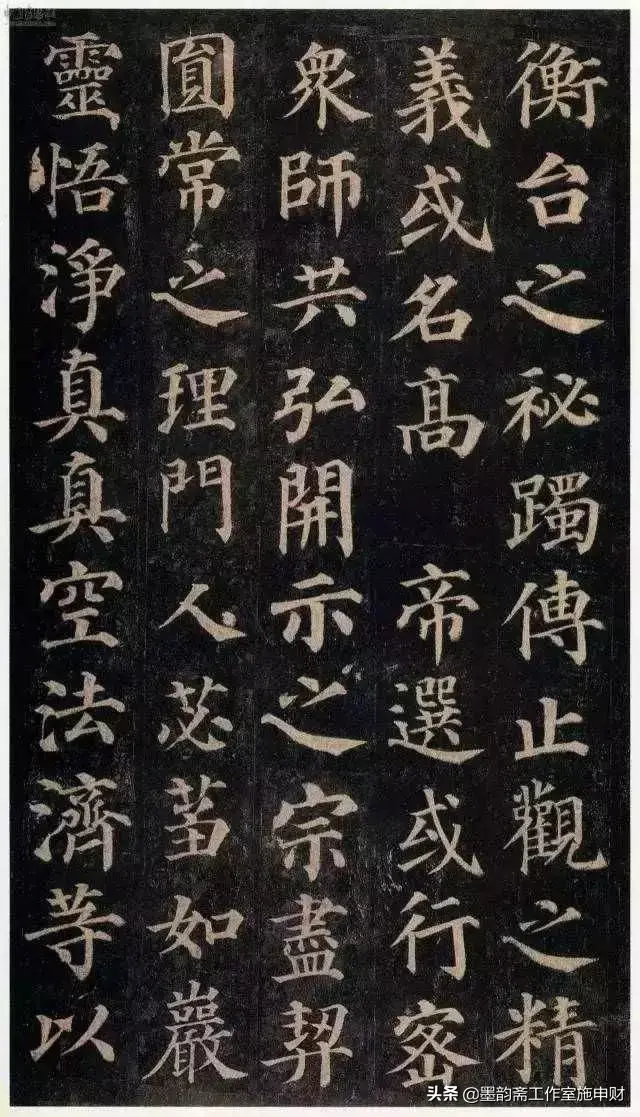 衡台之祕躅傳止觀之精
義或名高 帝選或行密
衆師共弘開示之宗盡契
圎常之理門人苾蒭如巖
靈悟淨真真空法濟等以
头条 @墨韵斋工作室施申财